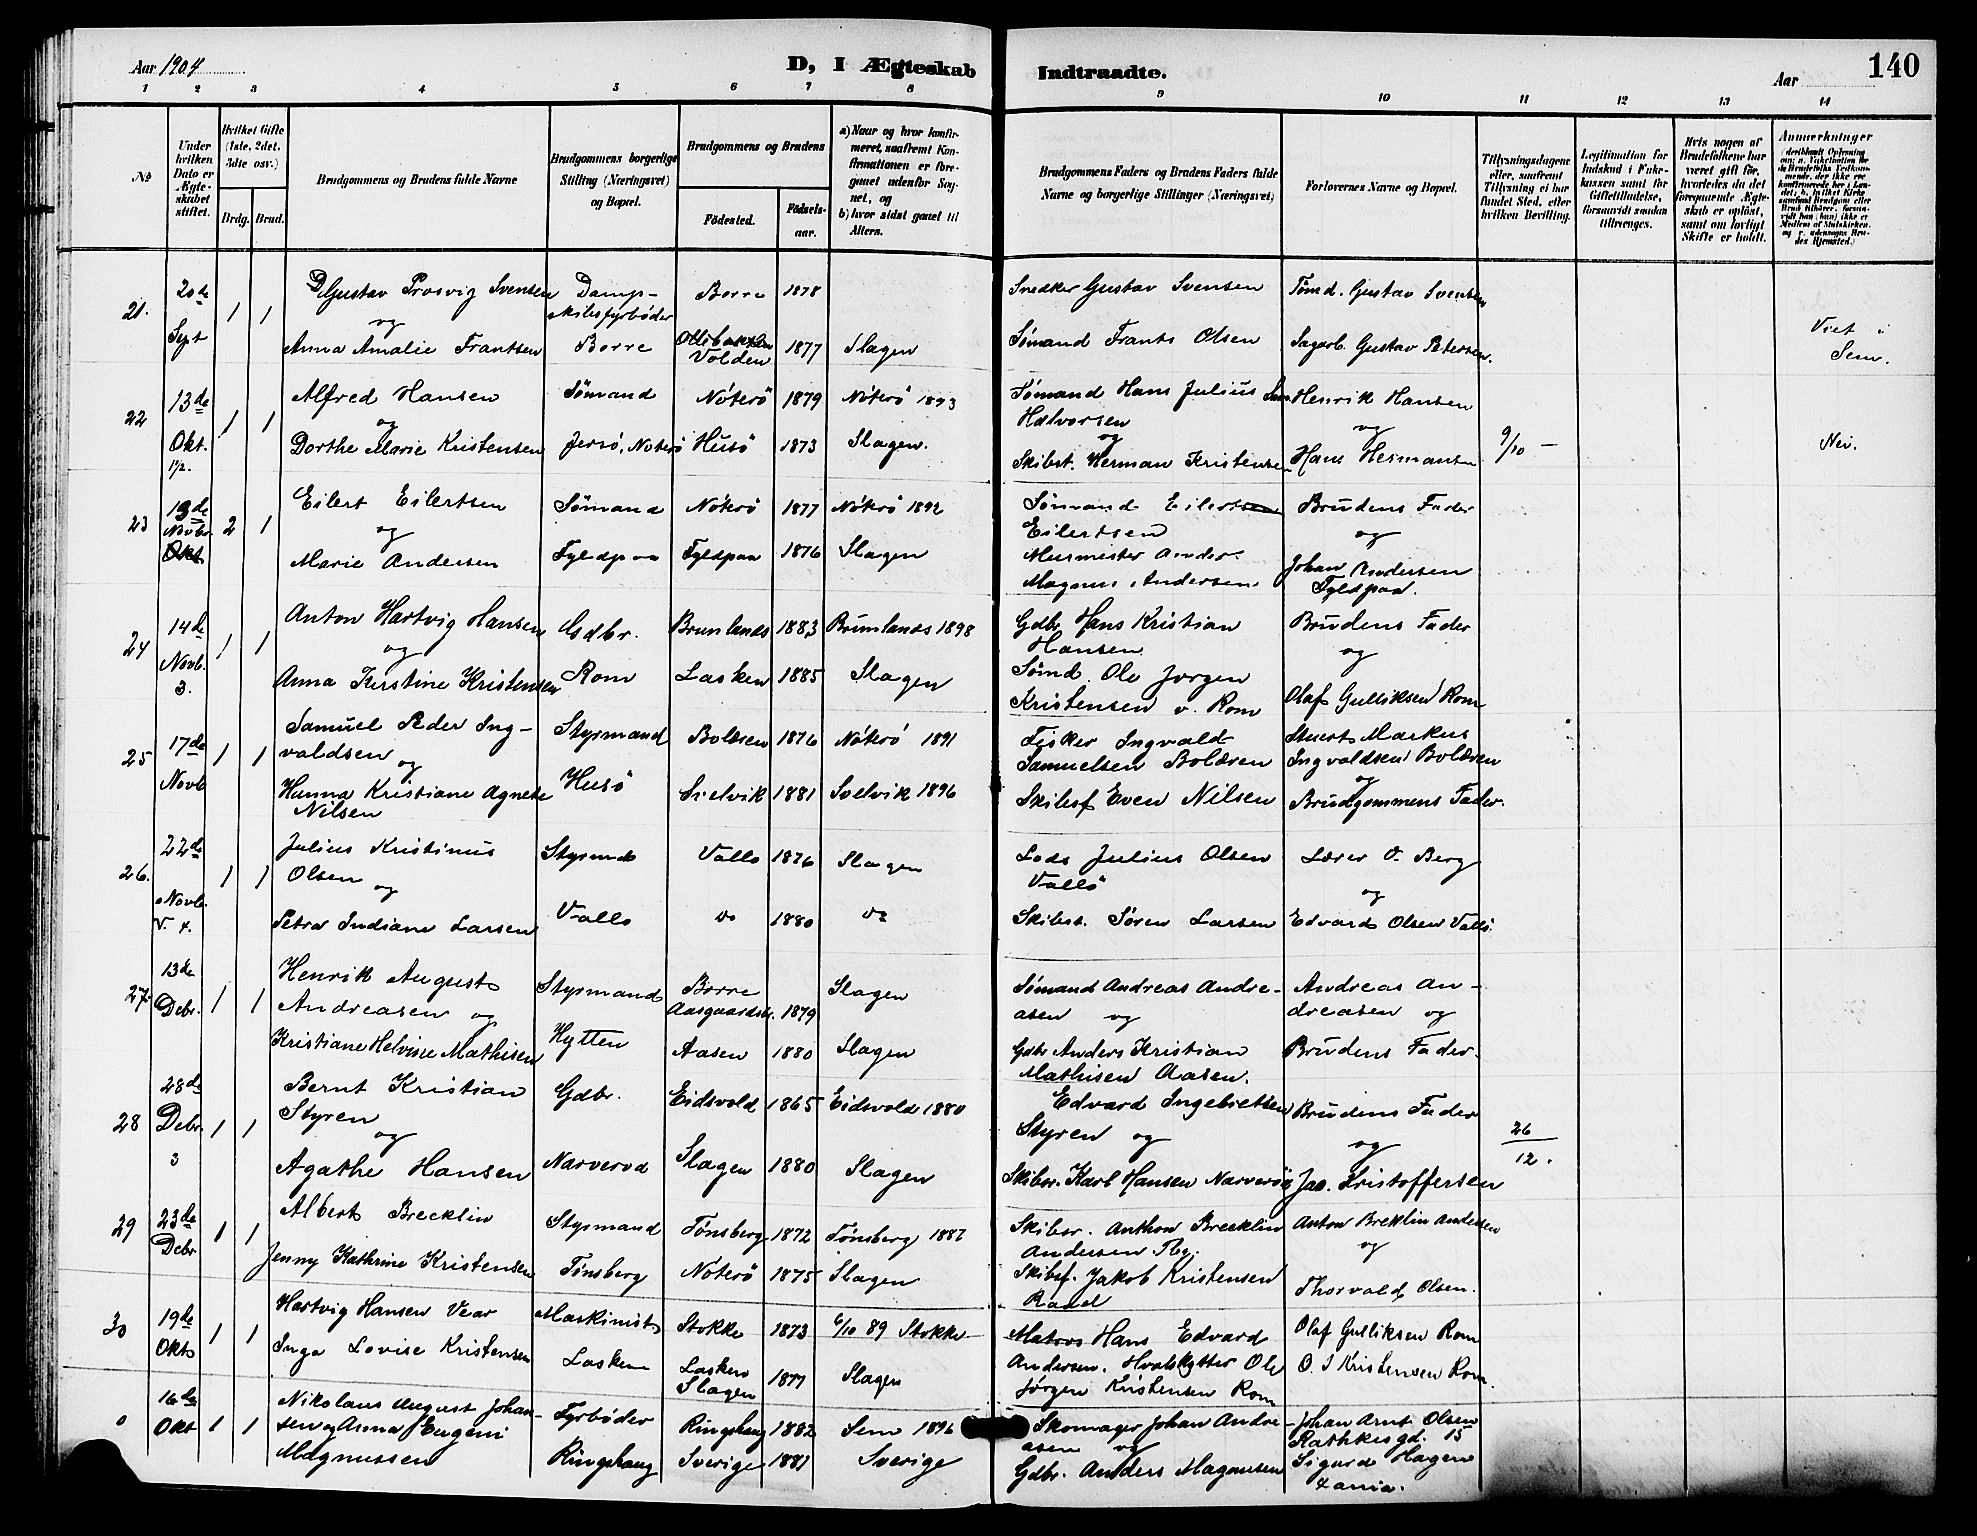 Aar 1904
D, I Ægteskab
Indtraadte.
Aar
140
1 2 3 4 5 6 7 8 9 10 11 12 13 14
No
Under hvilken Dato er Ægteskabet stiftet.
Hvilket Gifte (1ste, 2det, 3dte osv.)
Brdg. Brud.
Brudgommens og Brudens fulde Navne
Brudgommens borgerlige Stilling (Næringsvei) og Bopæl.
Brudgommens og Brudens
Födested. Födsels-aar.
a) Naar og hvor konfirmeret, saafremt Konfirmationen er foregaaet udenfor Sognet, og
b) hvor sidst gaaet til Alters.
Brudgommens Faders og Brudens Faders fulde Navne og borgerlige Stillinger (Næringsvei)
Forlovernes Navne og Bopæl.
Tillysningsdagene eller, saafremt Tillysning ei har fundet Sted, efter hvilken Bevilling.
Legitimation for Indskud i Enkekassen samt for Giftetilladelse, forsaavidt saadan tiltrænges.
Hvis nogen af Brudefolkene har været gift før, hvorledes da det foregaaende Ægteskab er oplöst, samt om lovligt Skifte er holdt.
Anmerkninger
21. 20de Sept 1 1
Gustav Prosvig Svensen
og
Anna Amalie Frantsen
Damp-
skibsfyrbøder
Borre
Borre 1878
Volden 1877 Slagen
Snedker Gustav Svensen
Sømand Frants Olsen
Tømd. Gustav Svensen
Sagarb. Gustav Petersen.
Viet i
Sem.
22 13de Okt. 1 1
Alfred Hansen
og
Dorthe Marie Kristensen
Sømand
Jersö, Noterö
Nöterö 1879 Nöterö 1893
Husö 1873 Slagen.
Sømand Hans Julius
Halvorsen
og
Skibst. Herman Kristensen
Henrik Hansen
og
Hans Hermansen
9/10 —
Nei.
23 13de Novbr. Okt. 2 1
Eilert Eilertsen
og
Marie Andersen
Sømand
Fyldpaa
Nöterö 1877 Nöterö 1892
Fyldpaa 1876 Slagen
Sømand Eilertsen
Eilertsen
Murmester Ander.
Magnus Andersen.
Brudens Fader
og
Johan Andersen
Fyldpaa.
24 14de Novb. 3. 1 1
Anton Hartvig Hansen
og
Anna Kirstine Kristensen
Gdbr.
Rom
Brunlands 1883 Brunlands 1898
Lasken 1885 Slagen
Gdbr. Hans Kristian
Hansen
Sømd. Ole Jørgen
Kristensen v. Rom
Brudens Fader
og
Olaf Gulliksen Rom
25 17de Novb. 1 1
Samuel Peder Ing-
valdsen og
Hanna Kristiane Agnete
Nilsen
Styrmand
Husö
Bolæren 1876 Nöterö 1891
Svelvik 1881 Svelvik 1896
Fisker Ingvald
Samuelsen Bolæren
Skibsf. Even Nilsen
Stuert Markus
Ingvaldsen Bolæren
og
Brudgommens Fader.
26. 22de Novb. V. 4. 1 1
Julius Kristinus
Olsen og
Petra Indiane Larsen
Styrmd
Vallo
Vallo 1876 Slagen
do 1880 do
Lods Julius Olsen
Vallö
Skibst. Søren Larsen
Lærer O. Berg
og
Edvard Olsen Vallö.
27 13de Debr. 1 1
Henrik August
Andreasen og
Kristiane Helvine Mathisen
Styrmand
Hytten
Borre
Aasgaardstr. 1879 Slagen
Aasen 1880 Slagen
Sømand Andreas Andre-
asen og
Gdbr Anders Kristian
Mathisen Aasen.
Andreas An-
dreasen og
Brudens Fader.
28 28de Debr. 3 1 1
Bernt Kristian
Styren
og
Agathe Hansen
Gdbr.
Narverød
Eidsvold 1865 Eidsvold 1880
Slagen 1880 Slagen
Edvard Ingebretsen
Styren og
Skibsr. Karl Hansen Narverö
Brudens Fader
og
Jac. Kristoffersen
26/12.
29 23de Debr 1 1
Albert Brecklin
Jenny Kathrine Kristensen
Styrmand
Tönsberg
Tønsberg 1872 Tønsberg 1887
Noterö 1875 Slagen
Skibsr. Anthon Brecklin
Andersen Tbg.
Skibsf. Jakob Kristensen
Raad
Anton Breklin Andersen
og
Thorvald Olsen.
30 19de Okt 1 1
Hartvig Hansen Vear
Inga Lovise Kristensen
Maskinist
Lasken
Stokke 1873 6/10 89 Stokke
Lasken
Slagen 1877 Slagen
Matros Hans Edvard
Andersen. Hvalskytter Ole
Jørgen Kristensen Rom
Olaf Gulliksen Rom
O. J Kristensen Rom.
16de Okt 1 1
Nikolaus August Johan-
sen og Anna Eugeni
Magnussen
Fyrbøder
Ringshaug
Ringshaug 1882 Sem 1896
Sverige 1881 Sverige
Skomager Johan Andre-
asen og
Gdbr. Anders Magnusen
Johan Arnt Olsen
Rathkesgd. 15
Sigurd Hagen